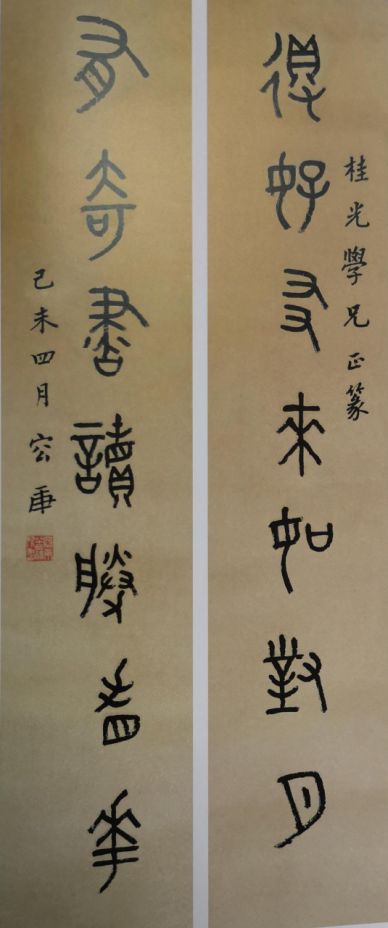 桂光學兄正篆
得好友來如對月
有奇書讀勝看花
己未四月容庚